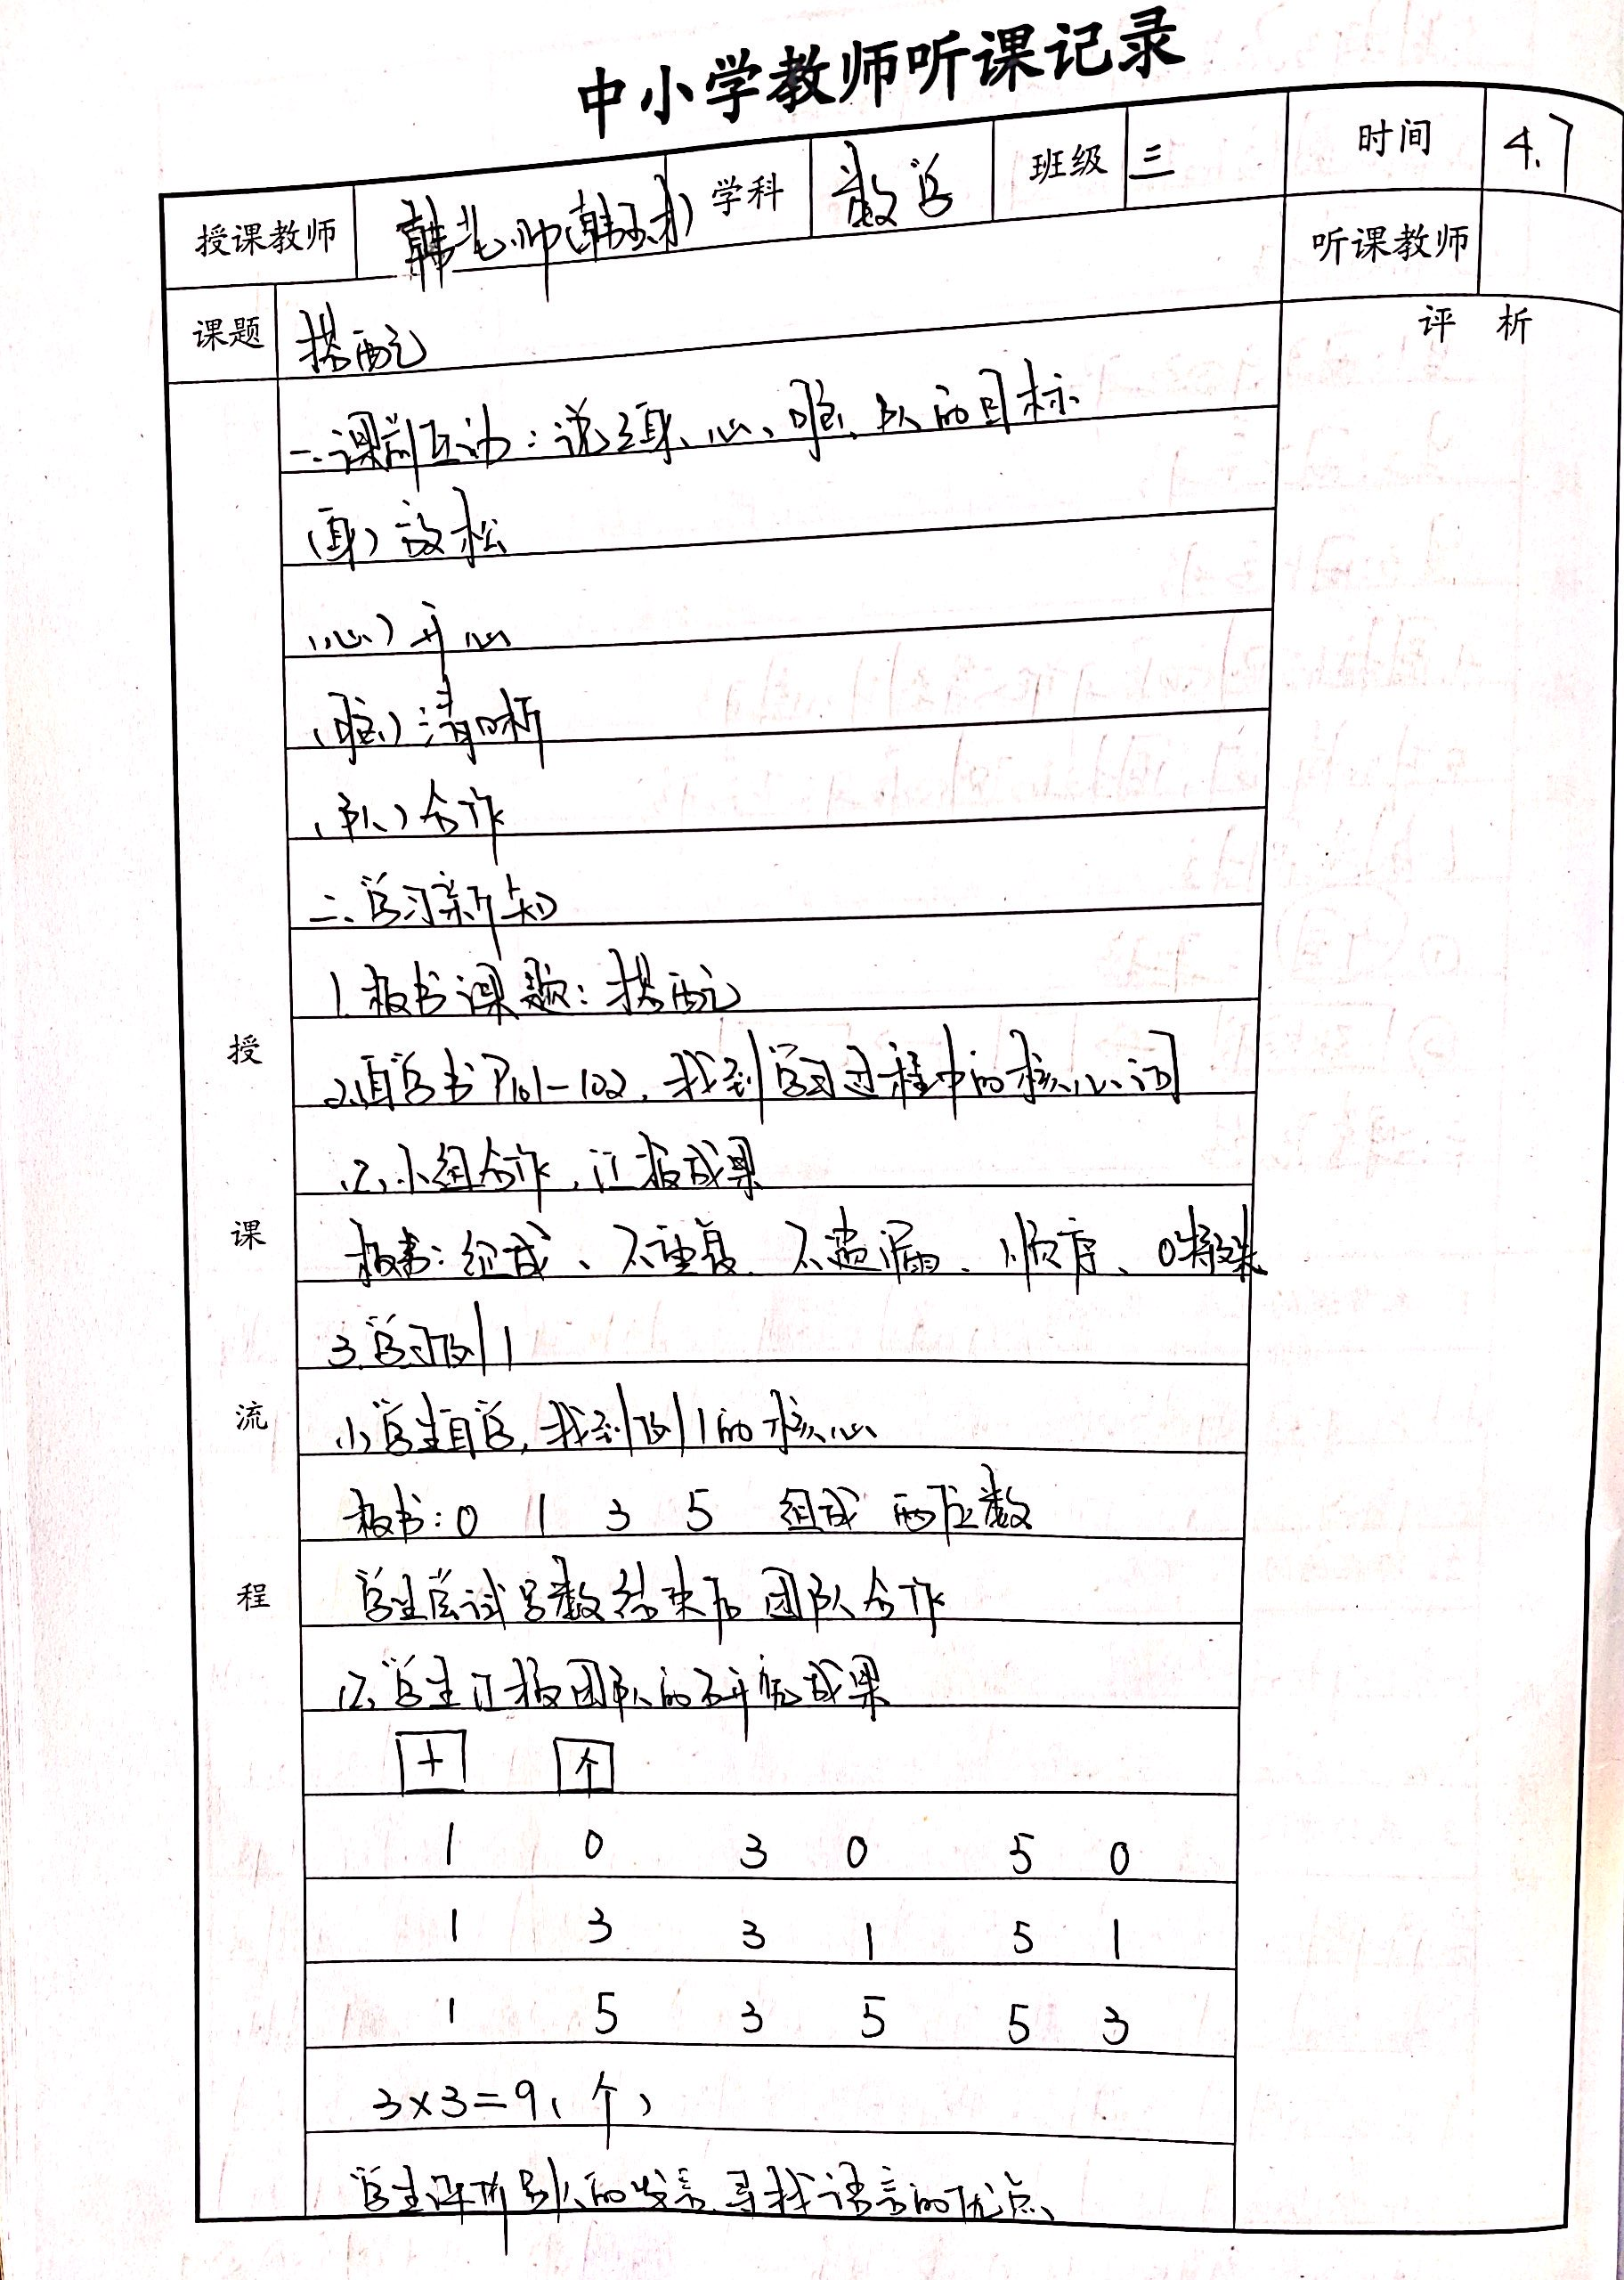 中小学教师听课记录
授课教师 韩老师(韩玉才) 学科 数学 班级 三 时间 4.7
听课教师
课题 搭配 评析
授课流程
一.课前互动:说说身、心、嘴、队的目标
(身)放松
(心)开心
(嘴)清晰
(队)合作
二、学习新知
1.板书课题:搭配
2.自学书P101-102,找到学习过程中的核心词
(2)小组合作,汇报成果
板书:组成、不重复、不遗漏、顺序、0特殊
3.学习例1
(1)学生自学,找到例1的核心
板书:0 1 3 5 组成 两位数
学生尝试写数结束后 团队合作
(2)学生汇报团队的研究成果
十 个
1 0 3 0 5 0
1 3 3 1 5 1
1 5 3 5 5 3
3×3=9(个)
学生评析别人的发言,寻找语言的优点